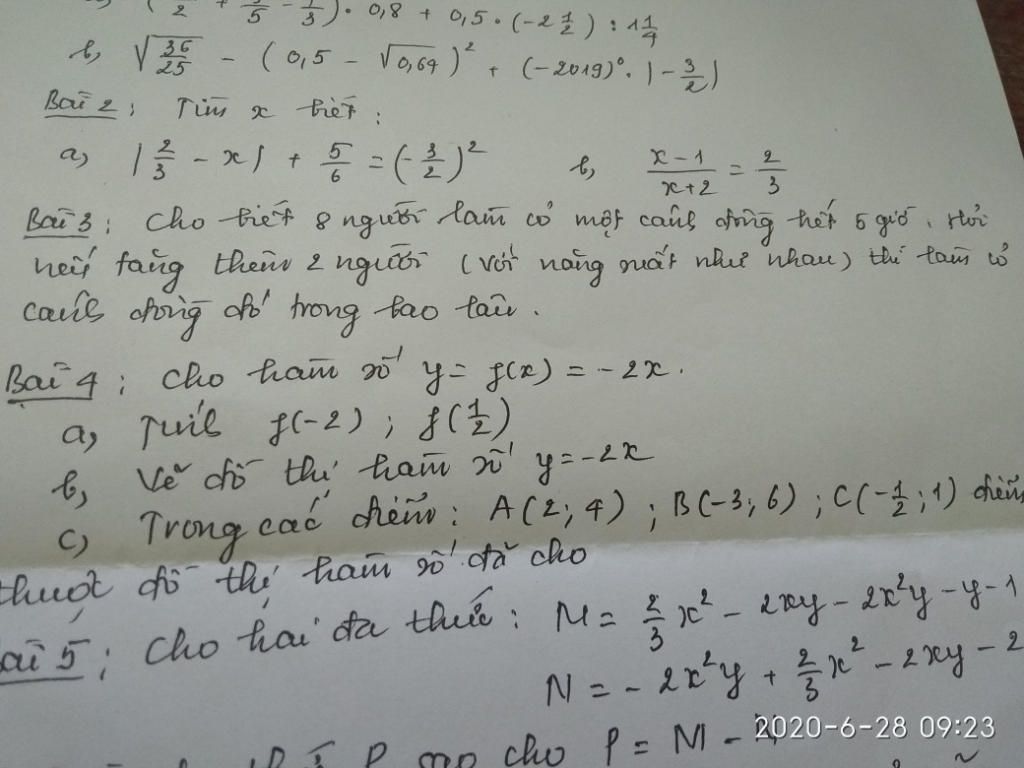 + 3/5 - 1/3) · 0,8 + 0,5 · (-2 1/2) : 1 1/4
b, √(36/25) - (0,5 - √0,64)² + (-2019)⁰ · |-3/2|
Bài 2 : Tìm x biết :
a, |2/3 - x| + 5/6 = (-3/2)² b, (x-1)/(x+2) = 2/3
Bài 3 : Cho biết 8 người làm cỏ một cánh đồng hết 5 giờ. Hỏi
nếu tăng thêm 2 người (với năng suất như nhau) thì làm cỏ
cánh đồng đó trong bao lâu.
Bài 4 : Cho hàm số y = f(x) = -2x.
a, Tính f(-2) ; f(1/2)
b, Vẽ đồ thị hàm số y = -2x
c, Trong các điểm : A(2; 4) ; B(-3; 6) ; C(-1/2; 1) điểm
thuộc đồ thị hàm số đã cho
Bài 5 : Cho hai đa thức : M = 2/3x² - 2xy - 2x²y - y - 1
N = -2x²y + 2/3x² - 2xy - 2
P sao cho P = M -
2020-6-28 09:23